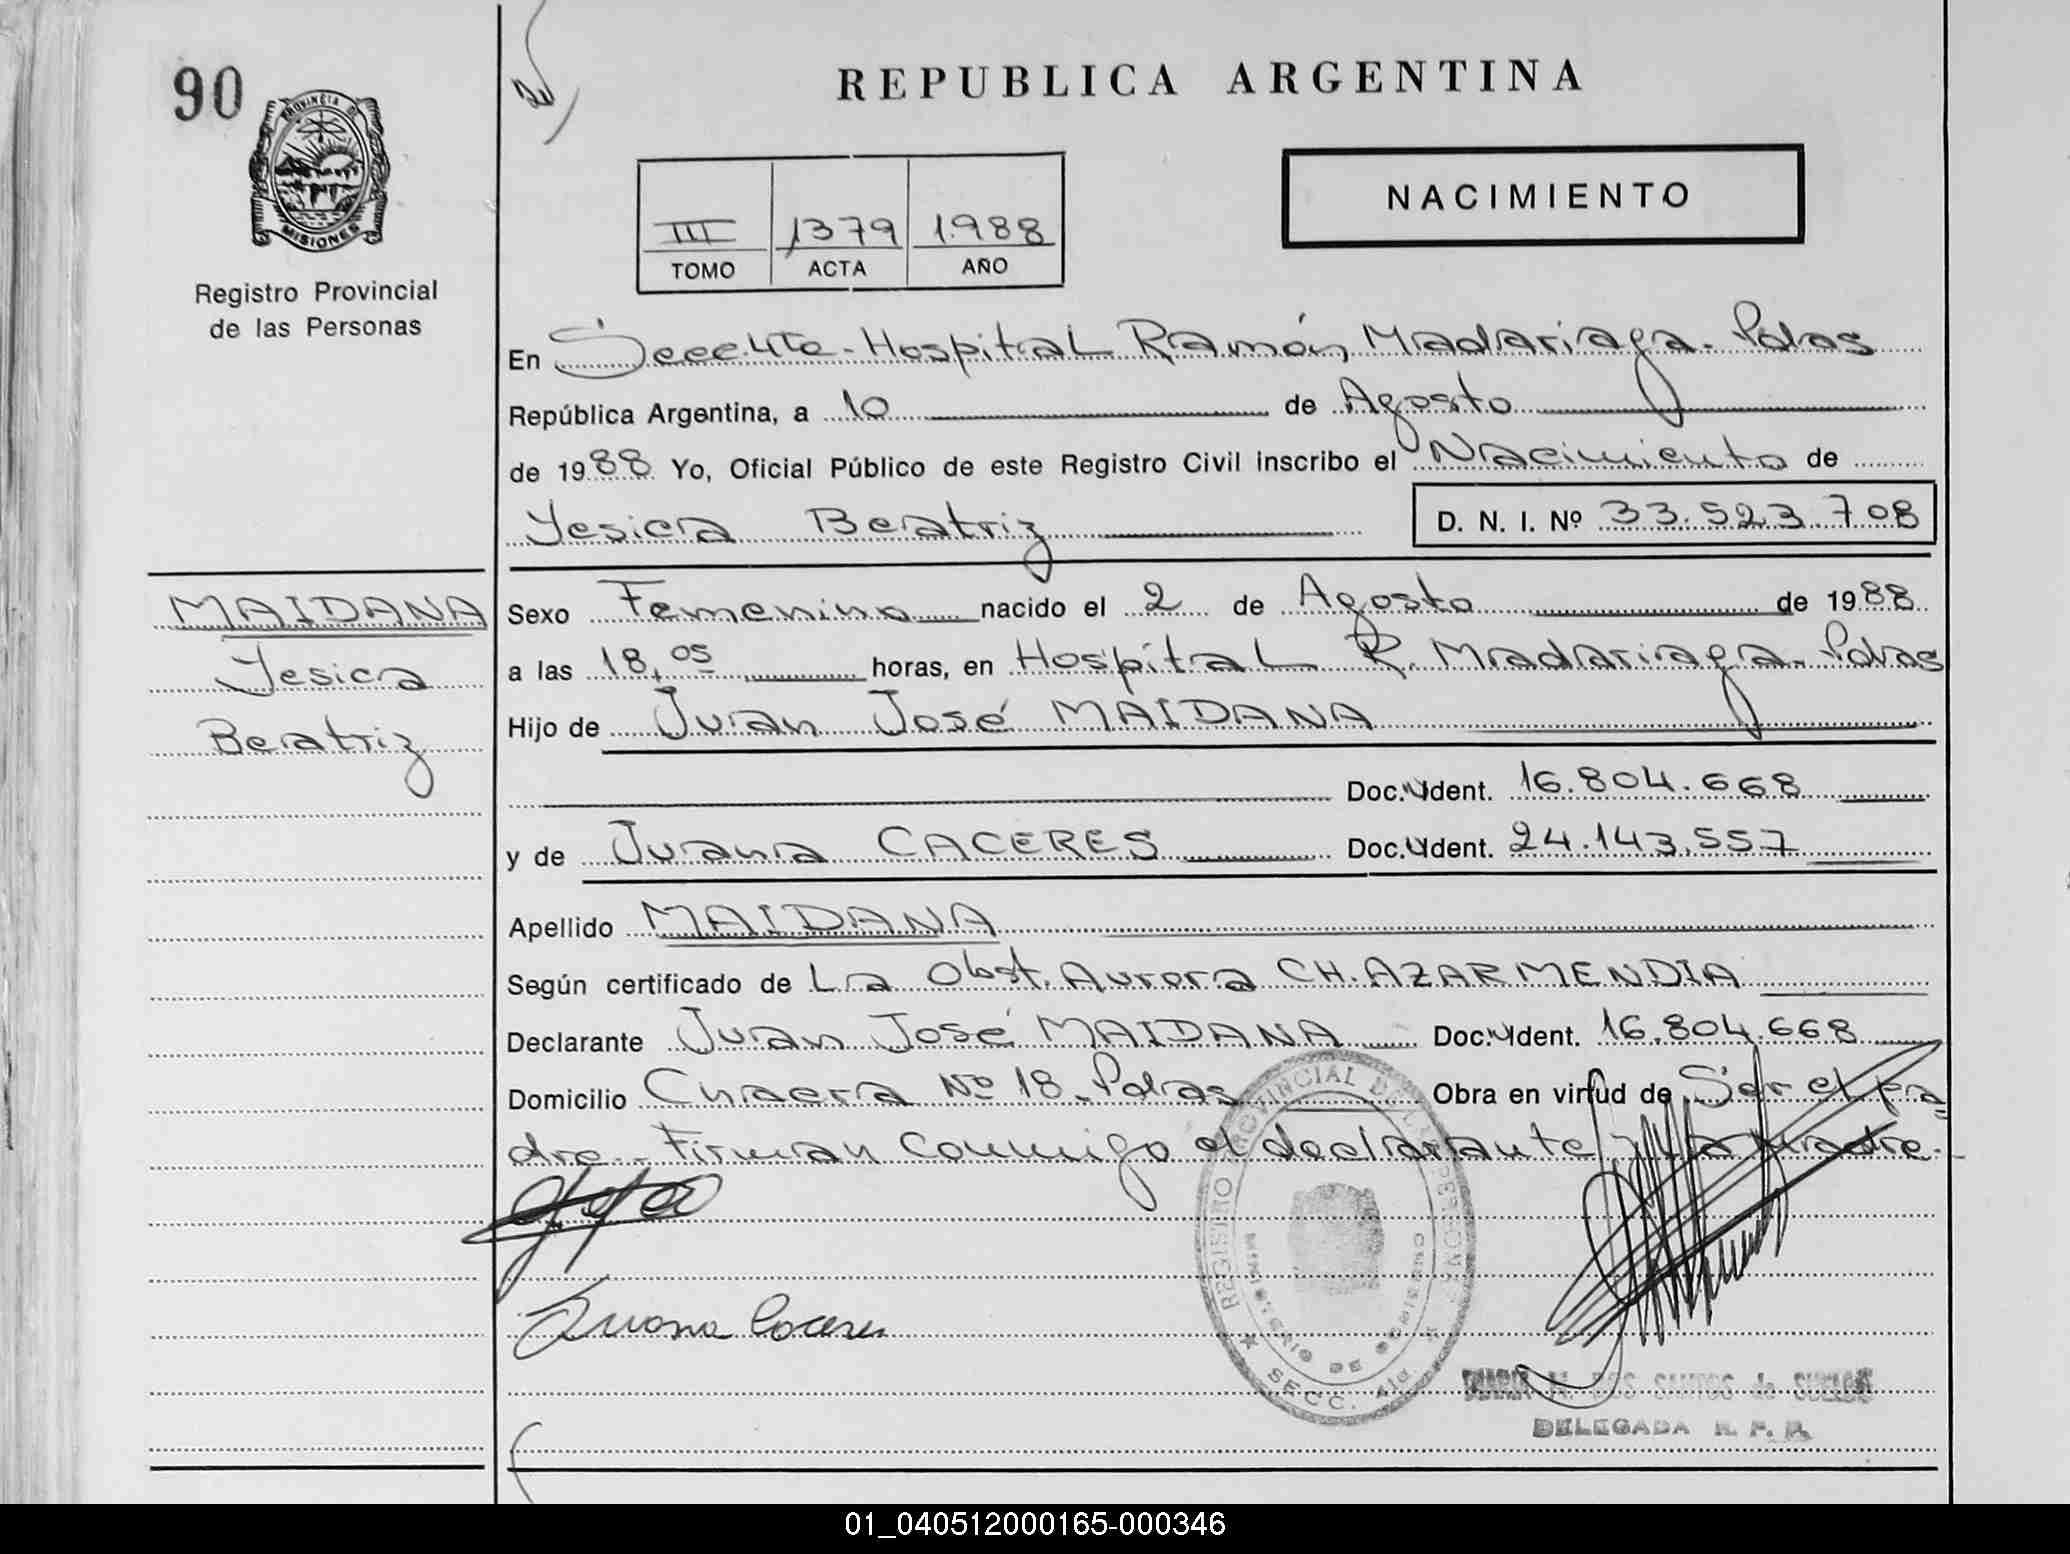 90
PROVINCIA DE
MISIONES
Registro Provincial
de las Personas
REPUBLICA ARGENTINA
NACIMIENTO
III 1379 1.988
TOMO ACTA AÑO
En Secc. 4ta - Hospital Ramón Madariaga. Pdas
República Argentina, a 10 de Agosto
de 1988 Yo, Oficial Público de este Registro Civil inscribo el Nacimiento de
Yesica Beatriz D. N. I. Nº 33.523.708
MAIDANA
Yesica
Beatriz
Sexo Femenino nacido el 2 de Agosto de 1988
a las 18,05 horas, en Hospital R. Madariaga. Pdas
Hijo de Juan José MAIDANA
Doc. Ident. 16.804.668
y de Juana CACERES Doc. Ident. 24.143.557
Apellido MAIDANA
Según certificado de La Obst. Aurora CH. AZARMENDIA
Declarante Juan José MAIDANA Doc. Ident. 16.804.668
Domicilio Chacra Nº 18. Pdas Obra en virtud de Ser el pa-
dre.- Firman conmigo el declarante y la Madre.-
Juana Caceres
REGISTRO PROVINCIAL DE LAS PERSONAS
MINISTERIO DE GOBIERNO
SECC. 4ta.
N. DOS SANTOS de
DELEGADA R. P. P.
01_040512000165-000346